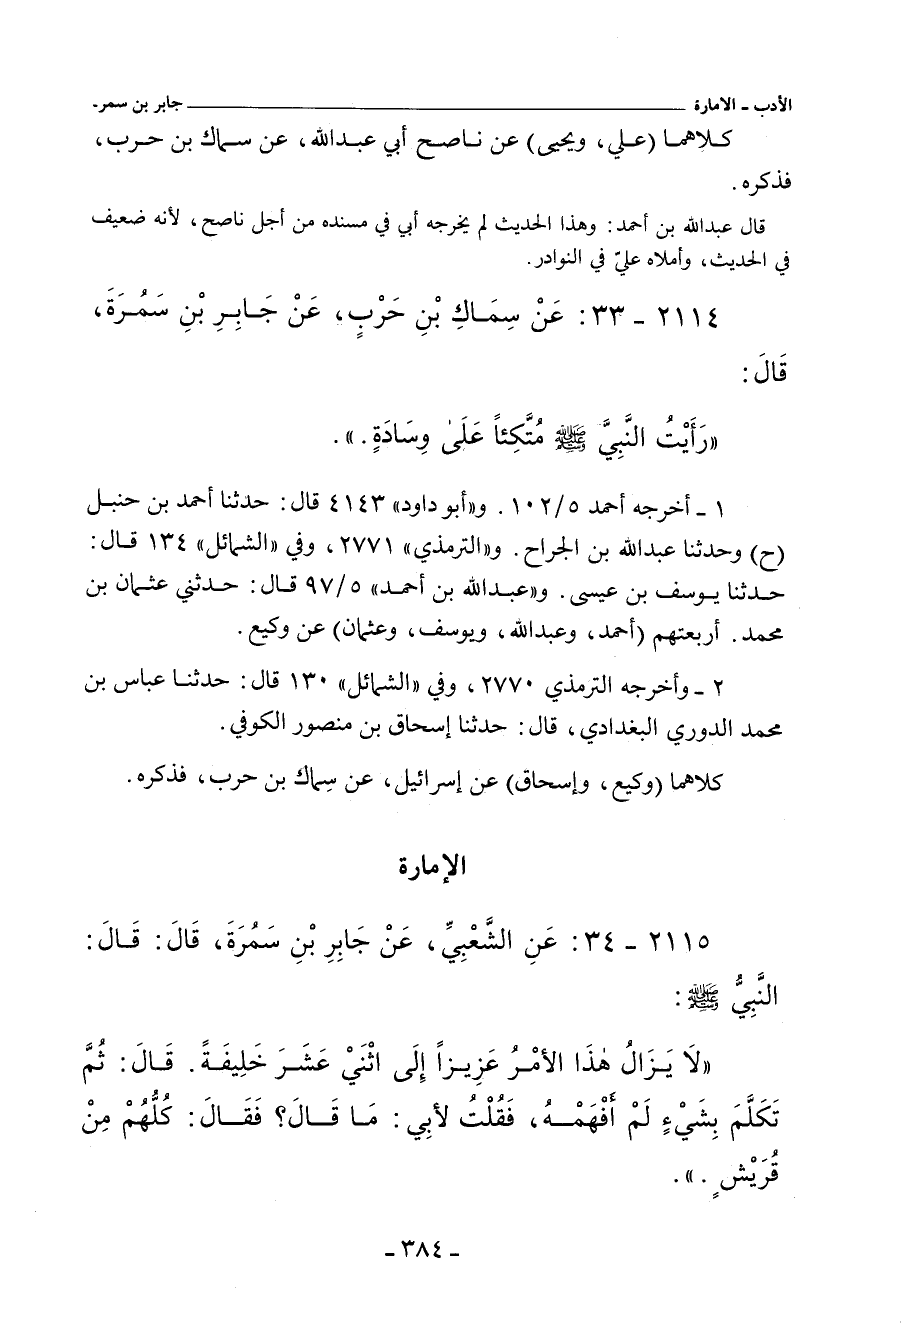 الأدب - الامارة ــــــــــــــــــــ جابر بن سمر-
كلاهما (علي، ويحيى) عن ناصح أبي عبدالله، عن سماك بن حرب،
فذكره .
قال عبدالله بن أحمد: وهذا الحديث لم يخرجه أبي في مسنده من أجل ناصح، لأنه ضعيف
في الحديث، وأملاه عليّ في النوادر.
٢١١٤ - ٣٣: عَنْ سِمَاكِ بْنِ حَرْبٍ، عَنْ جَابِرِ بْنِ سَمُرَةَ،
قَالَ:
«رَأَيْتُ النَّبِيَّ ﷺ مُتَّكِئاً عَلَىٰ وِسَادَةٍ.».
١ - أخرجه أحمد ١٠٢/٥. و«أبو داود» ٤١٤٣ قال: حدثنا أحمد بن حنبل
(ح) وحدثنا عبدالله بن الجراح. و«الترمذي» ٢٧٧١، وفي «الشمائل» ١٣٤ قال:
حدثنا يوسف بن عيسى. و«عبدالله بن أحمد» ٩٧/٥ قال: حدثني عثمان بن
محمد. أربعتهم (أحمد، وعبدالله، ويوسف، وعثمان) عن وكيع.
٢ - وأخرجه الترمذي ٢٧٧٠، وفي «الشمائل» ١٣٠ قال: حدثنا عباس بن
محمد الدوري البغدادي، قال: حدثنا إسحاق بن منصور الكوفي.
كلاهما (وكيع، وإسحاق) عن إسرائيل، عن سِماك بن حرب، فذكره.
الإمارة
٢١١٥ - ٣٤: عَنِ الشَّعْبِيِّ، عَنْ جَابِرِ بْنِ سَمُرَةَ، قَالَ: قَالَ:
النَّبِيُّ ﷺ:
«لَا يَزَالُ هٰذَا الأَمْرُ عَزِيزاً إِلَى اثْنَيْ عَشَرَ خَلِيفَةً. قَالَ: ثُمَّ
تَكَلَّمَ بِشَيْءٍ لَمْ أَفْهَمْهُ، فَقُلْتُ لأَبِي: مَا قَالَ؟ فَقَالَ: كُلُّهُمْ مِنْ
قُرَيْشٍ.».
- ٣٨٤ -